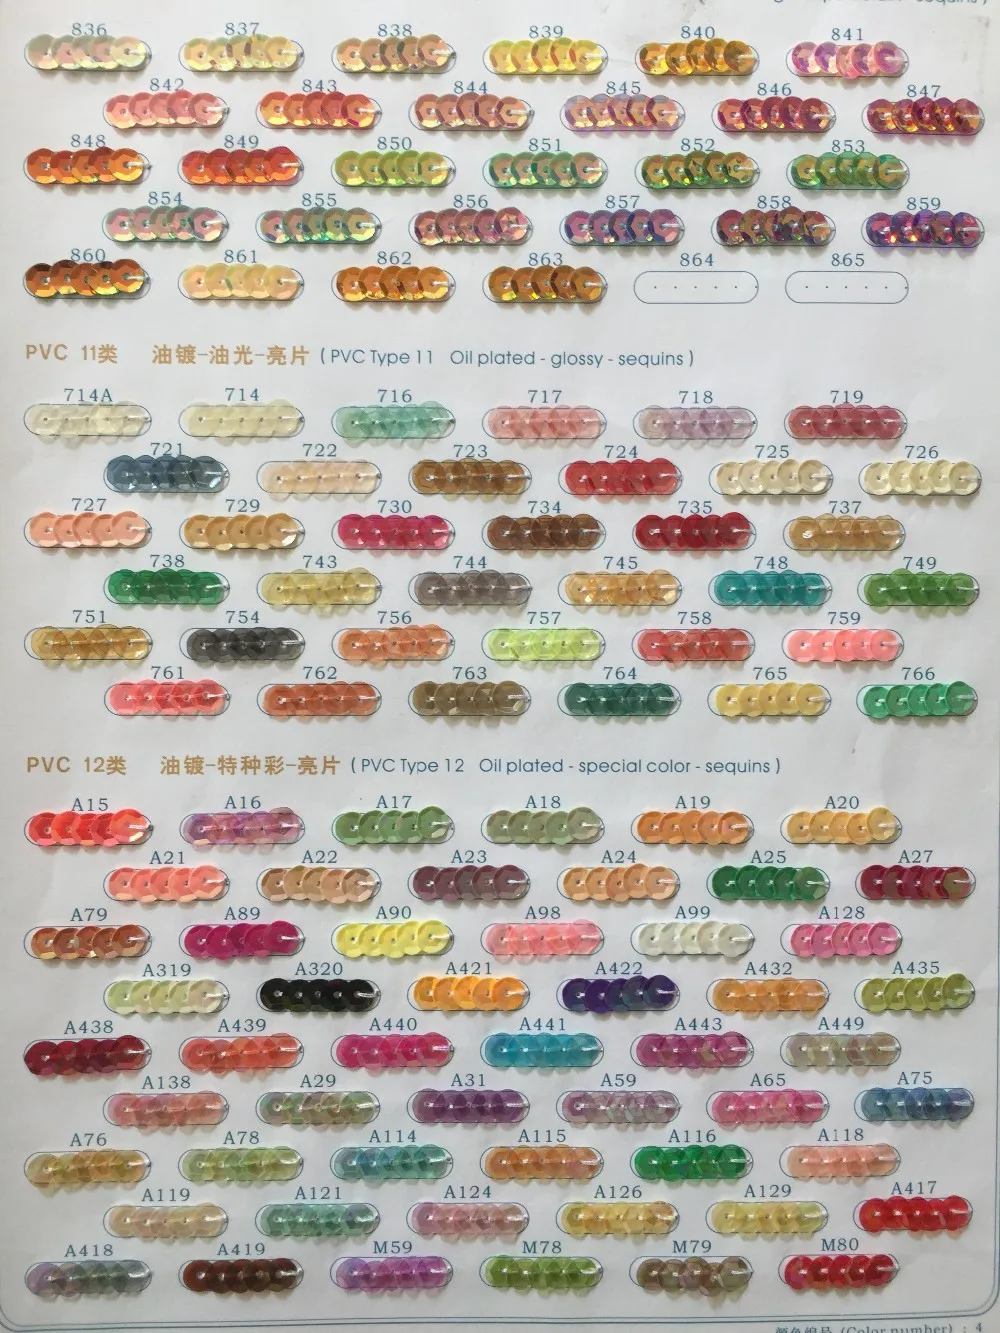 836 837 838 839 840 841
842 843 844 845 846 847
848 849 850 851 852 853
854 855 856 857 858 859
860 861 862 863 864 865
PVC 11类 油镀-油光-亮片 ( PVC Type 11 Oil plated - glossy - sequins )
714A 714 716 717 718 719
721 722 723 724 725 726
727 729 730 734 735 737
738 743 744 745 748 749
751 754 756 757 758 759
761 762 763 764 765 766
PVC 12类 油镀-特种彩-亮片 ( PVC Type 12 Oil plated - special color - sequins )
A15 A16 A17 A18 A19 A20
A21 A22 A23 A24 A25 A27
A79 A89 A90 A98 A99 A128
A319 A320 A421 A422 A432 A435
A438 A439 A440 A441 A443 A449
A138 A29 A31 A59 A65 A75
A76 A78 A114 A115 A116 A118
A119 A121 A124 A126 A129 A417
A418 A419 M59 M78 M79 M80
颜色编号 (Color number) : 4